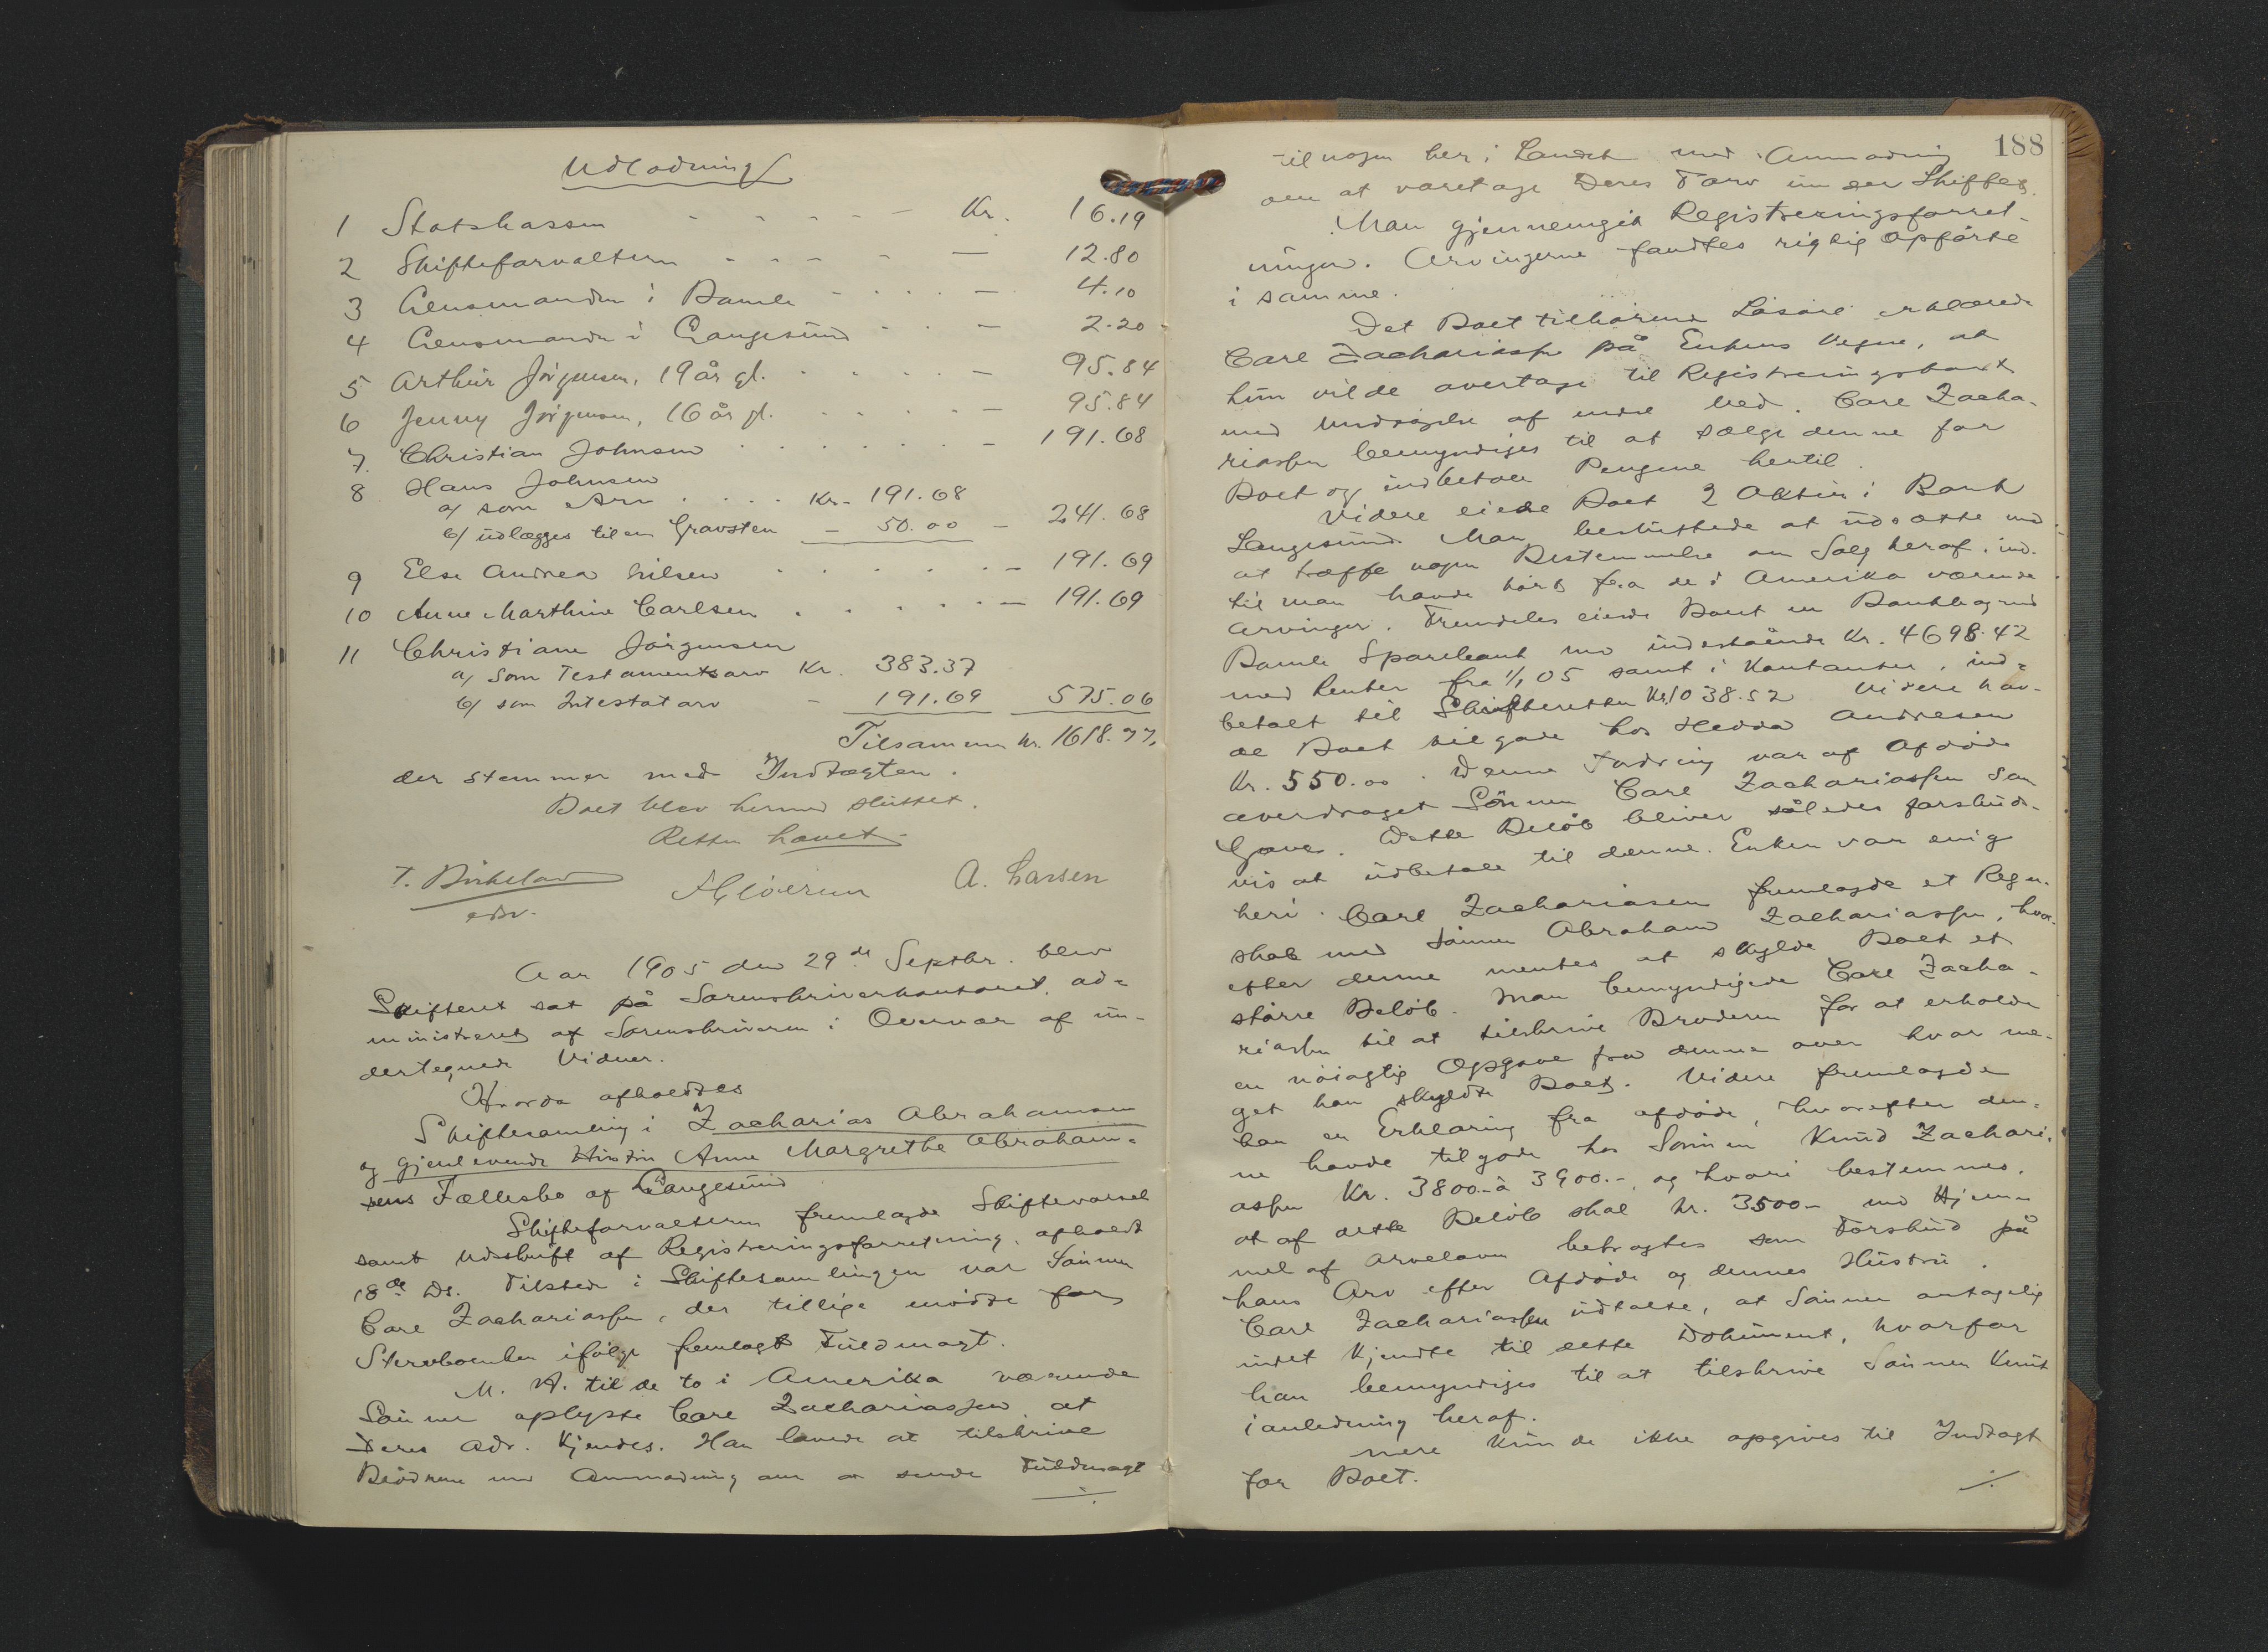 Udlodning
1 Statskassen - - - - - Kr. 16.19
2 Skifteforvalteren - - - - - 12.80
3 Lensmanden i Bamle - - - - - 4.10
4 Lensmanden i Langesund - - - 2.20
5 Arthur Jörgensen, 19 år gl. - - - - - 95.84
6 Jenny Jörgensen, 16 år gl. - - - - - 95.84
7. Christian Johnsen - - - - - - - 191.68
8 Hans Johnsen
a/ som Arv . . . . Kr. 191.68
b/ udlægges til en Gravsten - 50.00 - 241.68
9 Else Andrea Nilsen - - - - - - 191.69
10 Anne Marthine Carlsen . . . . . - 191.69
11 Christiane Jörgensen
a/ Som Testamentsarv Kr. 383.37
b/ som Intestatarv - 191.69 575.06
Tilsammen Kr. 1618.77,
der stemmer med Indtægten.
Boet blev hermed sluttet.
Retten hævet.
T. Birkeland A. Larsen
edsv.
Aar 1905 den 29de Septbr. blev
Skifteret sat på Sorenskriverkontoret, ad=
ministreret af Sorenskriveren i Overvær af un-
dertegnede Vidner.
Hvorda afholdtes
Skiftesamling i Zacharias Abrahamsen
og gjenlevende Hustru Anne Margrethe Abraham=
sens Fællesbo af Langesund
Skifteforvalteren fremlagde Skiftevarsel
samt Udskrift af Registreringsforretning, afholdt
18de Ds. Tilstede i Skiftesamlingen var Sönnen
Carl Zachariassen, der tillige mödte for
Stervboenken ifölge fremlagt Fuldmagt.
M. H. til de to i Amerika værende
Sönner oplyste Carl Zachariassen at
Deres Adr. kjendes. Han lovede at tilskrive
Brödrene med Anmodning om at sende Fuldmagt
./.
188
til nogen her i Landet med Anmodning
om at varetage Deres Tarv under Skiftet.
Man gjennemgik Registreringsforret-
ningen. Arvingerne fandtes rigtig opförte
i samme.
Det Boet tilhörende Lösöre erklærede
Carl Zachariassen på Enkens Vegne, at
hun vilde overtage til Registreringstaxt
med Undtagelse af endel Ved. Carl Zacha-
riassen bemyndiges til at sælge denne for
Boet og indbetale Pengene hertil.
Videre eiede Boet 2 Aktier i Bank
Langesund. Man besluttede at udsætte med
at træffe nogen Bestemmelse om Salg heraf, ind-
til man havde hört fra de i Amerika værende
Arvinger. Fremdeles eiede Boet en Bankbog med
Bamle Sparebank med indestående Kr. 4698.42
med Renter fra 1/1 05 samt i Kontanter, ind=
betalt til Skifteretten Kr. 1038.52 Videre hav-
de Boet tilgode hos Hedda Andresen
Kr. 550.00. Denne Fordring var af Afdöde
overdraget Sönnen Carl Zachariassen som
Gave. Dette Belöb bliver således forskuds-
vis at udbetale til denne. Enken var enig
heri. Carl Zachariasen fremlagde et Regn-
skab med Sönnen Abraham Zachariassen, hvor-
efter denne mentes at skylde Boet et
större Belöb. Man bemyndigede Carl Zacha-
riassen til at tilskrive Broderen for at erholde
en nöiagtig Opgave fra denne over hvor me-
get han skyldte Boet. Videre fremlagde
han en Erklæring fra afdöde, hvorefter den-
ne havde tilgode hos Sönnen Knud Zachari-
assen Kr. 3800.- à 3900.-, og hvori bestemmes,
at af dette Belöb skal Kr. 3500- med Hjem-
mel af Arveloven betragtes som Forskud på
hans Arv efter Afdöde og dennes Hustru.
Carl Zachariassen udtalte, at Sönnen antagelig
intet kjendte til dette Dokument, hvorfor
han bemyndiges til at tilskrive Sönnen Knut
i anledning heraf.
Mere kunde ikke opgives til Indtægt
for Boet.
./.